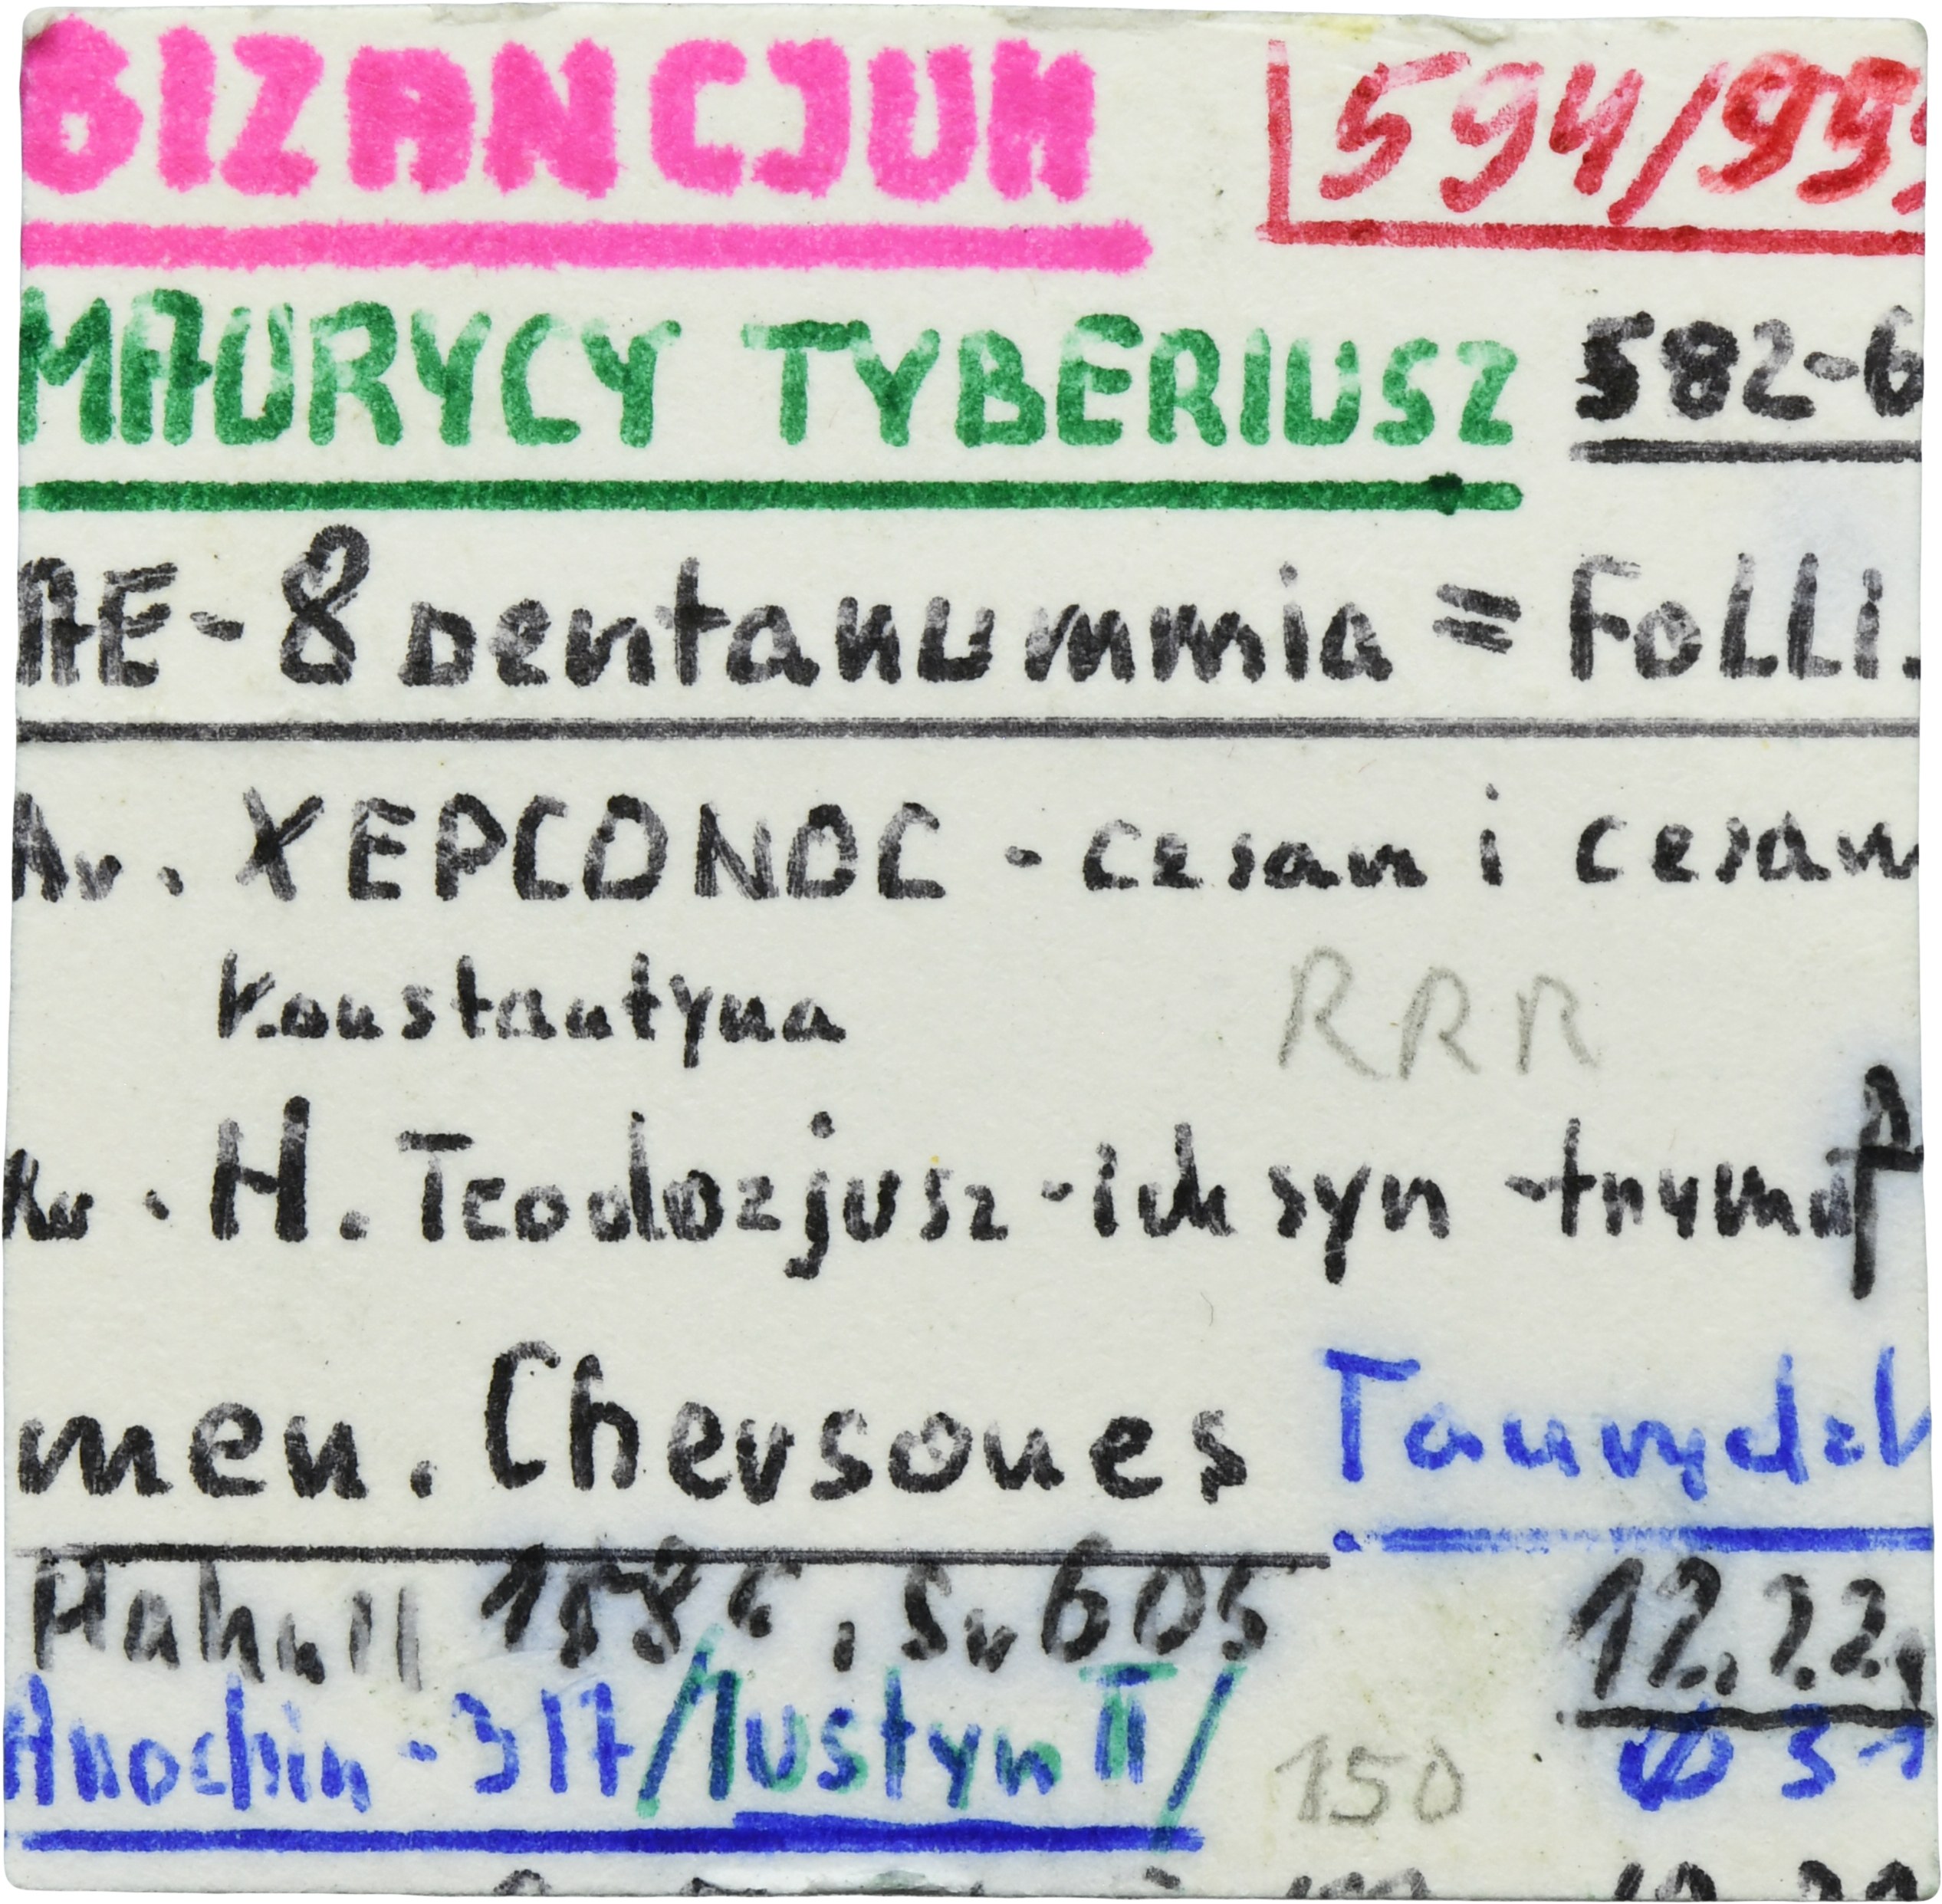 BIZANCJUM 594/999
MAURYCY TYBERIUSZ 582-6
AE-8 pentanummia = Folli.
Av. XEPCONOC - cesarz i cesarz
Konstantyna RRR
Rv. H. Teodozjusz - ich syn - trzyma
men. Chersones Taurydzk
Hahn II 158c, S. 605 12.22,
Anochin - 317 /Iustyn II/ 150 Ø 31